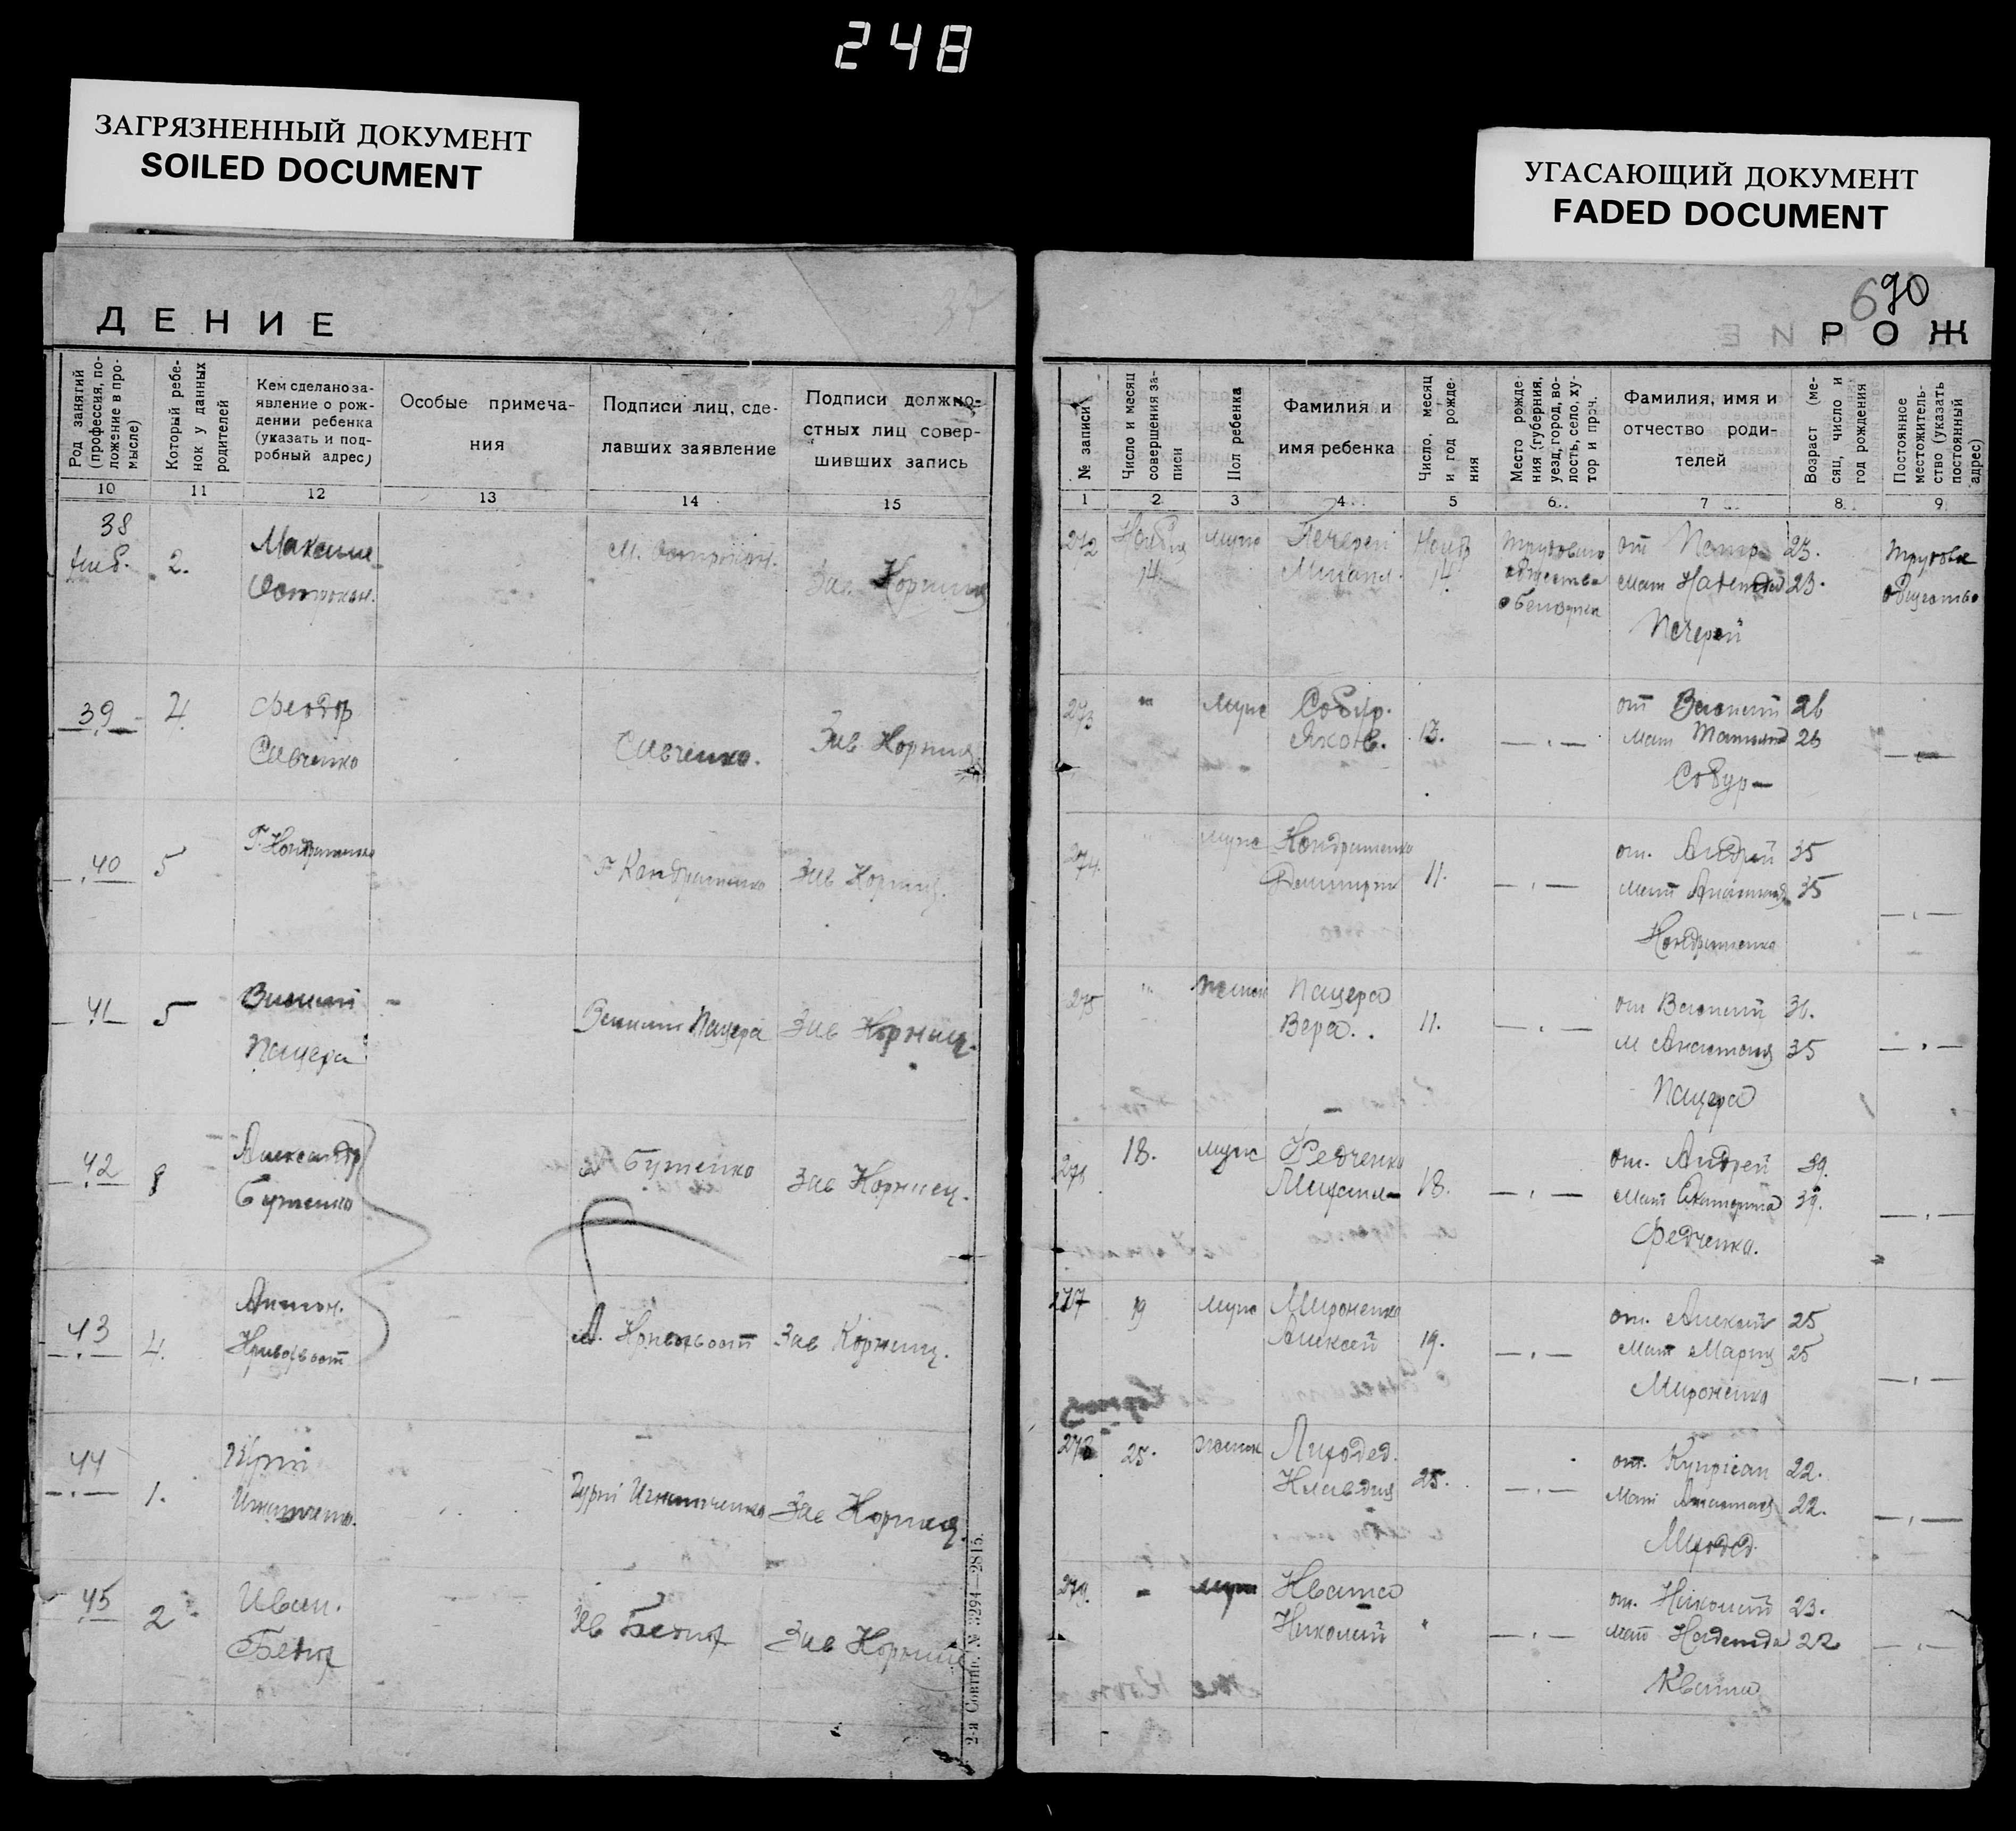 248
ЗАГРЯЗНЕННЫЙ ДОКУМЕНТ
SOILED DOCUMENT
УГАСАЮЩИЙ ДОКУМЕНТ
FADED DOCUMENT
ДЕНИЕ
Род занятий (профессия, положение в промысле)
Который ребенок у данных родителей
Кем сделано за-
явление о рож-
дении ребенка
(указать и под-
робный адрес)
Особые примеча-
ния
Подписи лиц, сде-
лавших заявление
Подписи должно-
стных лиц совер-
шивших запись
10 11 12 13 14 15
38
2. Максим
Зав. Корниец
39 4 Феодор
Савченко Савченко. Зав Корниец
40 5 Г. Кондратенко Г Кондратенко Зав Корниец.
41 5 Василий
Пацера Василий Пацера Зав Корниец.
42 8 Александр
Бутенко А Бутенко Зав Корниец.
43 4. Антон.
Кривохвост А. Кривохвост Зав Корниец.
44 1. Гурий
Игнатченко. Гурий Игнатченко Зав Корниец
45 2 Иван.
Зав Корниец
2-я Совтип. № 3294—2815.
690
РОЖ
№ записи
Число и месяц совершения записи
Пол ребенка
Фамилия и
имя ребенка
Число, месяц и год рождения
Место рождения (губерния, уезд, город, волость, село, хутор и проч.
Фамилия, имя и
отчество роди-
телей
Возраст (месяц, число и год рождения
Постоянное местожительство (указать постоянный адрес)
1 2 3 4 5 6 7 8 9
272 Ноября муж Печерей Нояб от Петр 25.
14. Михаил. 14. общества мат Надежда 23. общество
Печерей
273 " муж Собур. от Василий 26
Яков. 13. — . — мат Татьяна 26
Собур
274. " муж Кондратенко от. Андрей 35
Димитрий 11. — . — мат Анастасия 35 — . —
Кондратенко
275 " женск Пацера от Василий 36.
Вера. 11. — . — м Анастасия 35 — . —
Пацера
276 18. муж Федченко от. Андрей 39.
Михаил 18. — . — мат Екатерина 39. — . —
Федченко.
277 19 муж Мироненко от. Алексей 25
Алексей 19. — . — мат Мария 25 — . —
Мироненко
278 25. женск Лиходед. от. Куприан 22.
Клавдия 25. — . — мат Анастасия 22. — . —
Лиходед
279. " муж Квата от. Николай 23.
Николай " — . — мат Надежда 22 — . —
Квата